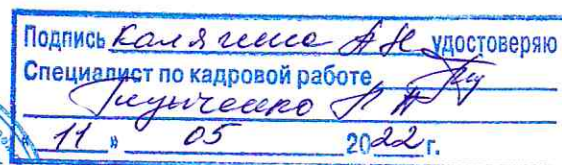 Подпись Калягина А Н удостоверяю
Специалист по кадровой работе
« 11 » 05 2022 г.